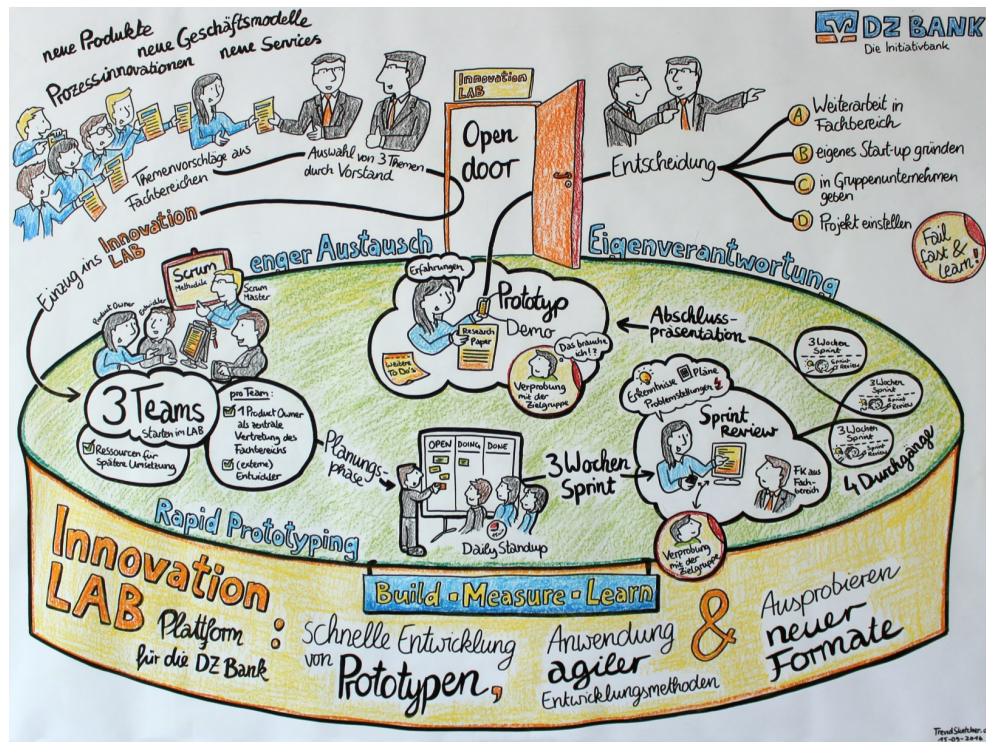 neue Produkte
neue Geschäftsmodelle
Prozessinnovationen
neue Services
DZ BANK
Die Initiativbank
Innovation
LAB
Open
door
Themenvorschläge aus
Fachbereichen
Auswahl von 3 Themen
durch Vorstand
Entscheidung
A Weiterarbeit in
Fachbereich
B eigenes Start-up gründen
C in Gruppenunternehmen
geben
D Projekt einstellen
Fail
fast &
learn!
Einzug ins Innovation
LAB
enger Austausch
Eigenverantwortung
Scrum
Methodik
Scrum
Master
Product Owner
Entwickler
3 Teams
Starten im LAB
Ressourcen für
spätere Umsetzung
pro Team:
1 Product Owner
als zentrale
Vertretung des
Fachbereichs
(externe)
Entwickler
Planungs-
phase
Erfahrungen
Prototyp
Demo
Research
Paper
Weitere
To Do's
Das brauche
ich!?
Verprobung
mit der
Zielgruppe
Abschluss-
präsentation
OPEN DOING DONE
Daily Standup
3 Wochen
Sprint
Erkenntnisse Pläne
Problemstellungen
Sprint
Review
FK aus
Fach-
bereich
Verprobung
mit der
Zielgruppe
3 Wochen
Sprint
Sprint
Review
3 Wochen
Sprint
Sprint
Review
3 Wochen
Sprint
Sprint
Review
4 Durchgänge
Rapid Prototyping
Build - Measure - Learn
Innovation
LAB :
Plattform
für die DZ Bank
schnelle Entwicklung
von Prototypen,
Anwendung
agiler
Entwicklungsmethoden
&
Ausprobieren
neuer
Formate
15-09-2016